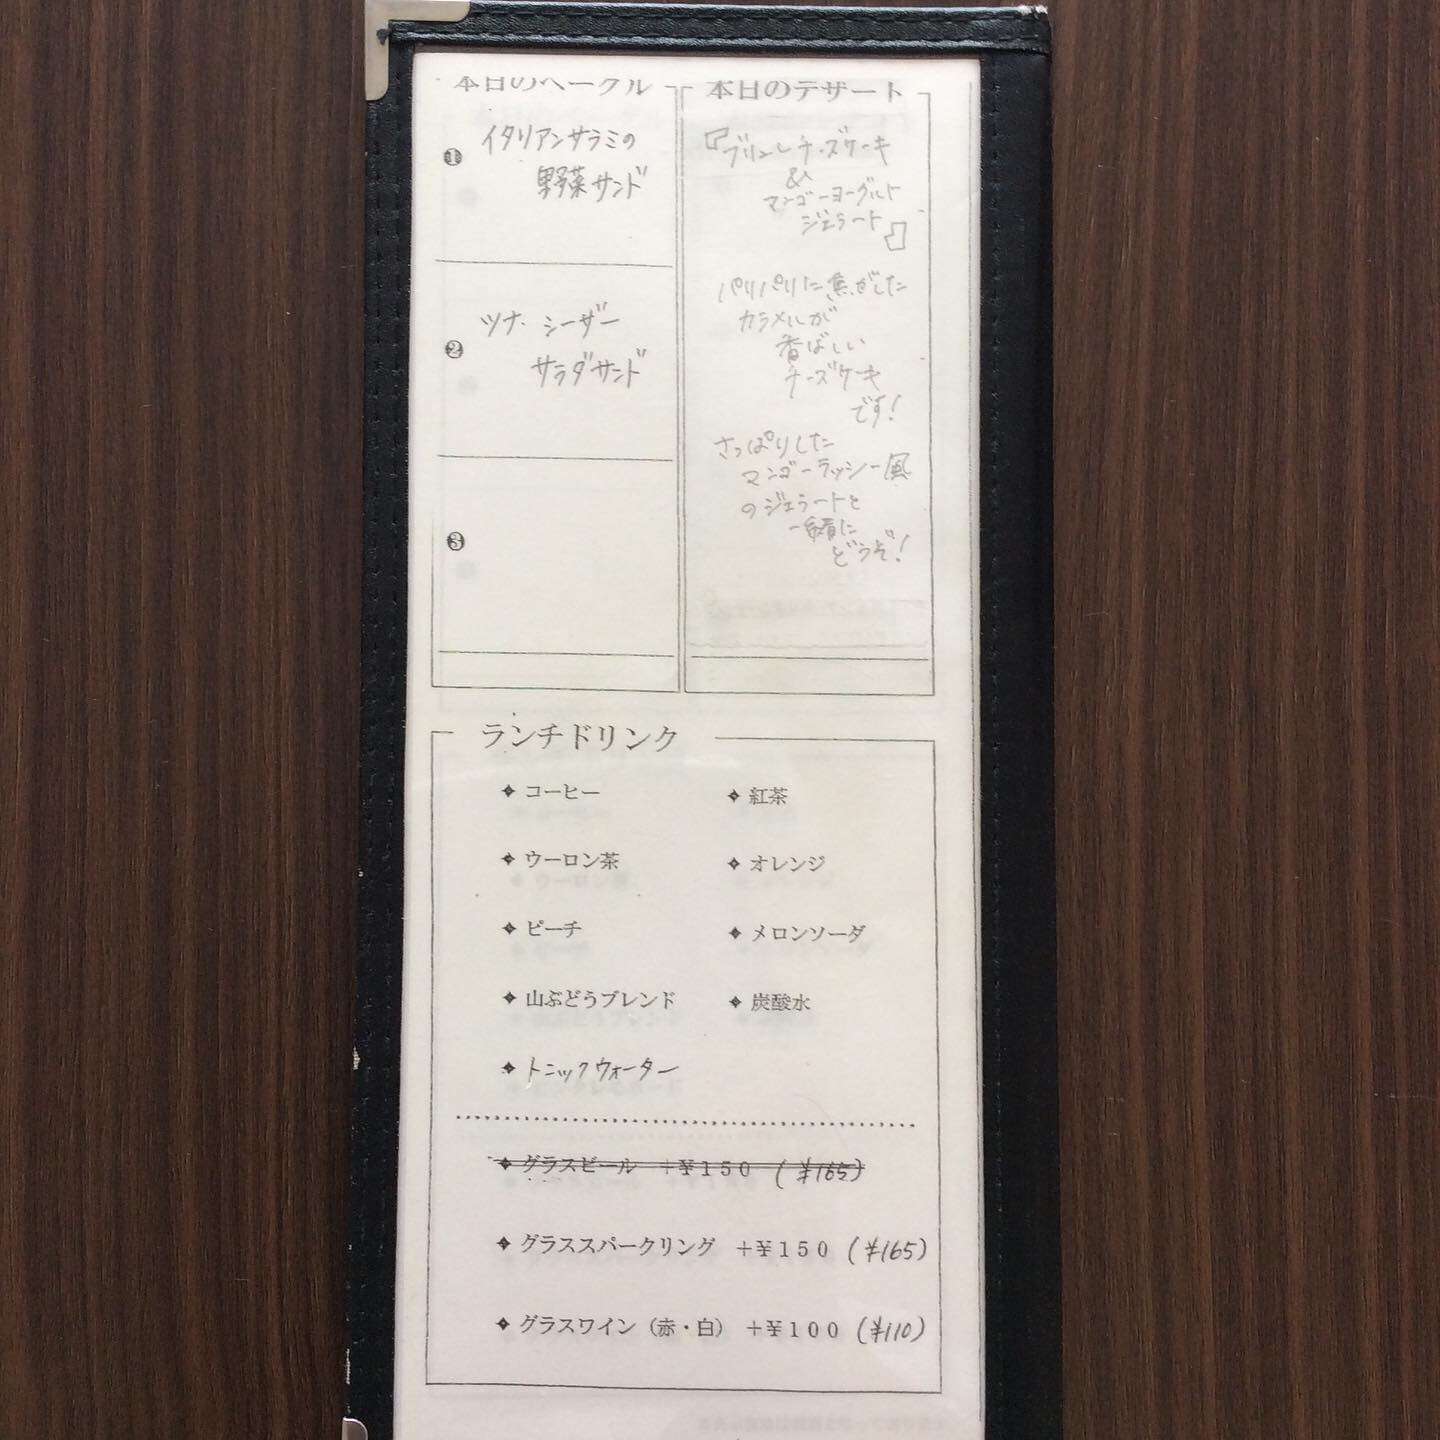 本日のベーグル
❶ イタリアンサラミの
野菜サンド
❷ ツナ・シーザー
サラダサンド
❸
本日のデザート
『ブリュレチーズケーキ
&
マンゴーヨーグルト
ジェラート』
パリパリに焦がした
カラメルが
香ばしい
チーズケーキ
です!
さっぱりした
マンゴーラッシー風
のジェラートと
一緒に
どうぞ!
ランチドリンク
コーヒー
紅茶
ウーロン茶
オレンジ
ピーチ
メロンソーダ
山ぶどうブレンド
炭酸水
トニックウォーター
グラスビール +¥150 (¥165)
グラススパークリング +¥150 (¥165)
グラスワイン（赤・白） +¥100 (¥110)